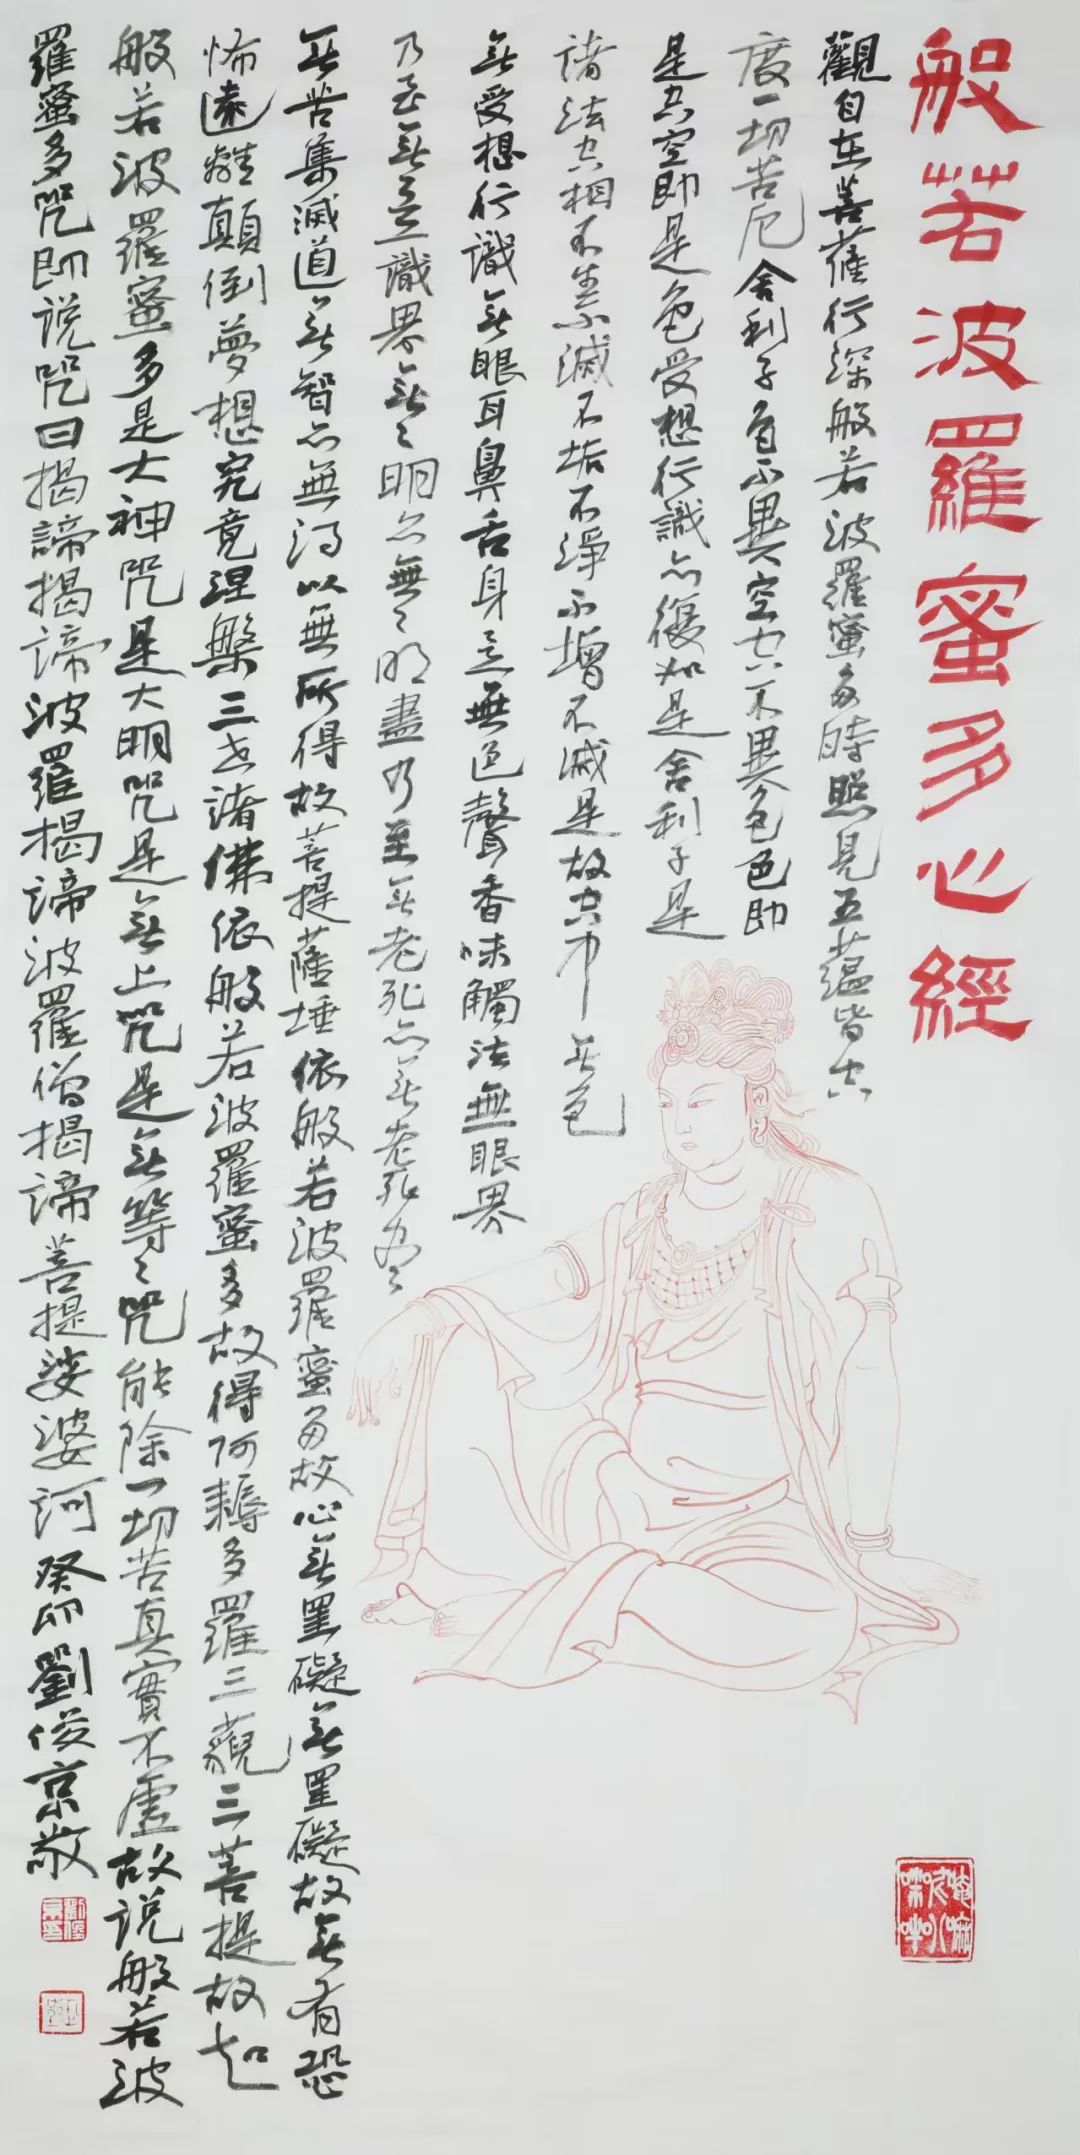 般若波羅蜜多心經
觀自在菩薩行深般若波羅蜜多時照見五蘊皆空
度一切苦厄舍利子色不異空空不異色色即
是空空即是色受想行識亦復如是舍利子是
諸法空相不生不滅不垢不淨不增不減是故空中無色
無受想行識無眼耳鼻舌身意無色聲香味觸法無眼界
乃至無意識界無〻明亦無〻明盡乃至無老死亦無老死盡
無苦集滅道無智亦無得以無所得故菩提薩埵依般若波羅蜜多故心無罣礙無罣礙故無有恐
怖遠離顛倒夢想究竟涅槃三世諸佛依般若波羅蜜多故得阿耨多羅三藐三菩提故知
般若波羅蜜多是大神咒是大明咒是無上咒是無等〻咒能除一切苦真實不虛故說般若波
羅蜜多咒即說咒曰揭諦揭諦波羅揭諦波羅僧揭諦菩提娑婆訶癸卯劉俊京敬
劉俊京印
唵嘛呢叭咪吽